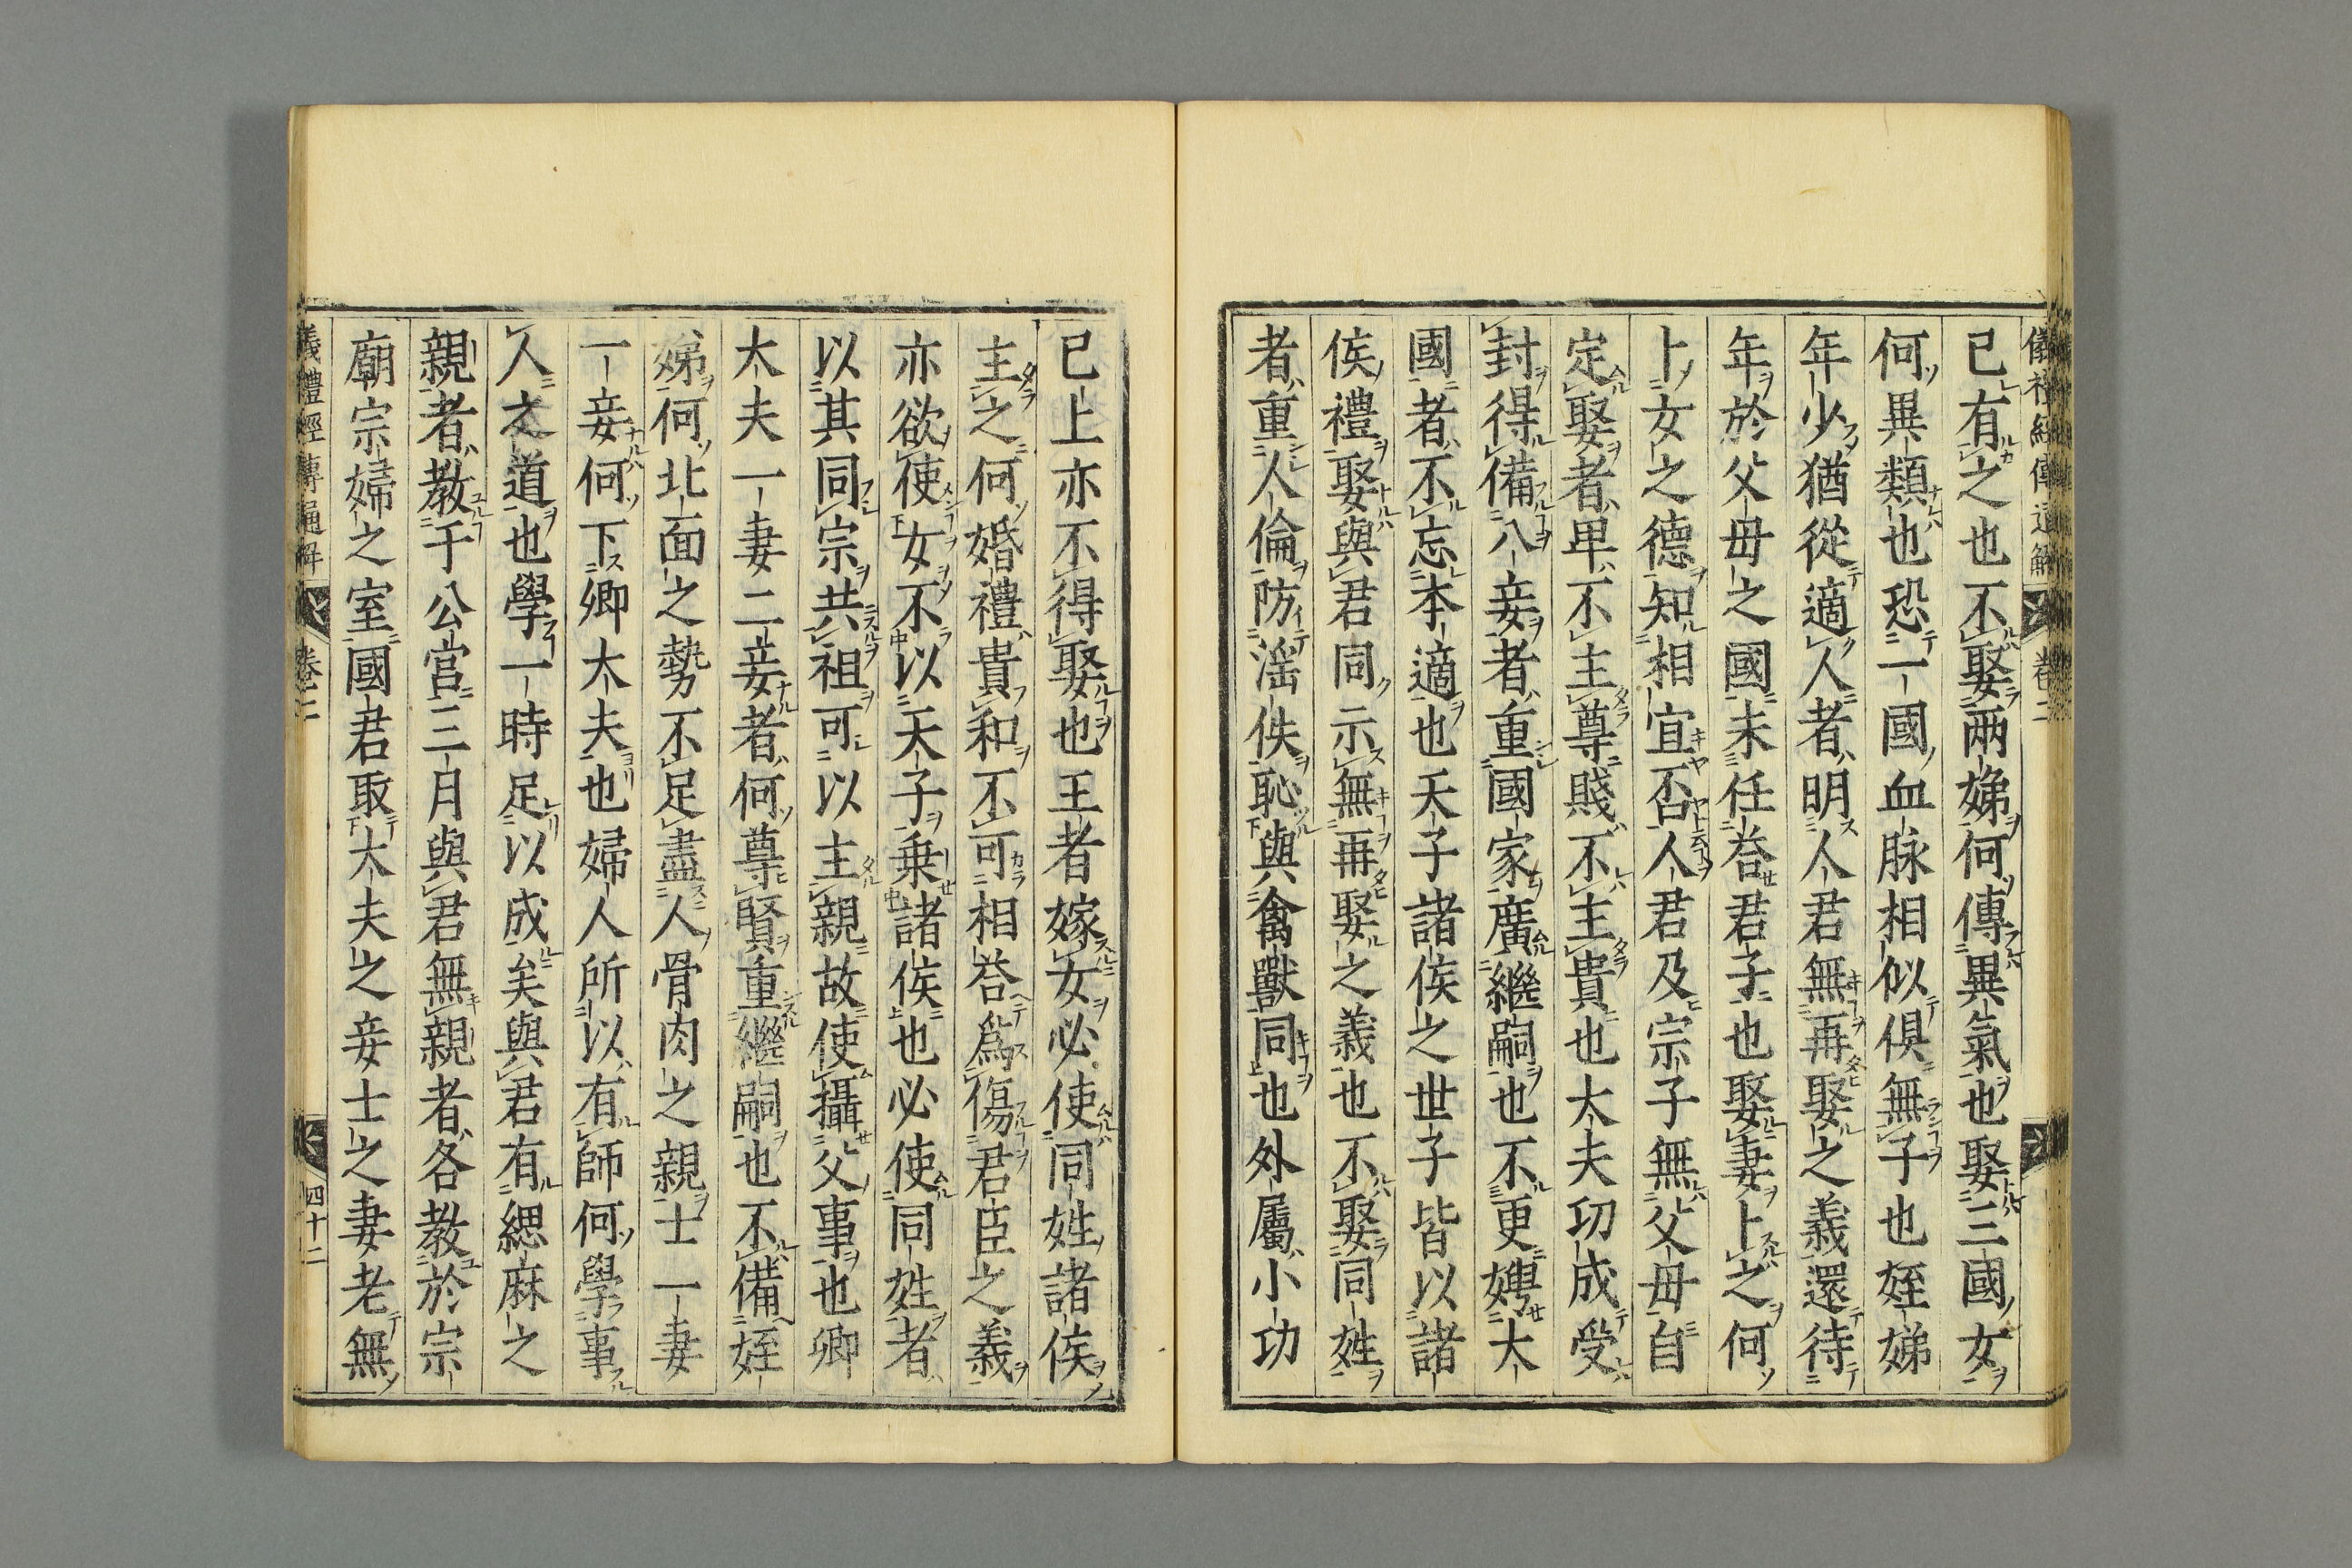 儀禮經傳通解 卷二
已有之也不娶兩娣何傳異氣也娶三國女
何異類也恐一國血脉相似俱無子也姪娣
年少猶從適人者明人君無再娶之義還待
年於父母之國未任荅君子也娶妻卜之何
卜女之德知相宜否人君及宗子無父母自
定娶者卑不主尊賤不主貴也大夫功成受
封得備八妾者重國家廣繼嗣也不更娉大
國者不忘本適也天子諸侯之世子皆以諸
侯禮娶與君同示無再娶之義也不娶同姓
者重人倫防滛佚恥與禽獸同也外屬小功
已上亦不得娶也王者嫁女必使同姓諸侯
主之何婚禮貴和不可相荅爲傷君臣之義
亦欲使女不以天子乗諸侯也必使同姓者
以其同宗共祖可以主親故使攝父事也卿
大夫一妻二妾者何尊賢重繼嗣也不備姪
娣何北面之勢不足盡人骨肉之親士一妻
一妾何下卿大夫也婦人所以有師何學事
人之道也學一時足以成矣與君有緦麻之
親者教于公宮三月與君無親者各教於宗
廟宗婦之室國君取大夫之妾士之妻老無
儀禮經傳通解 卷二 四十二